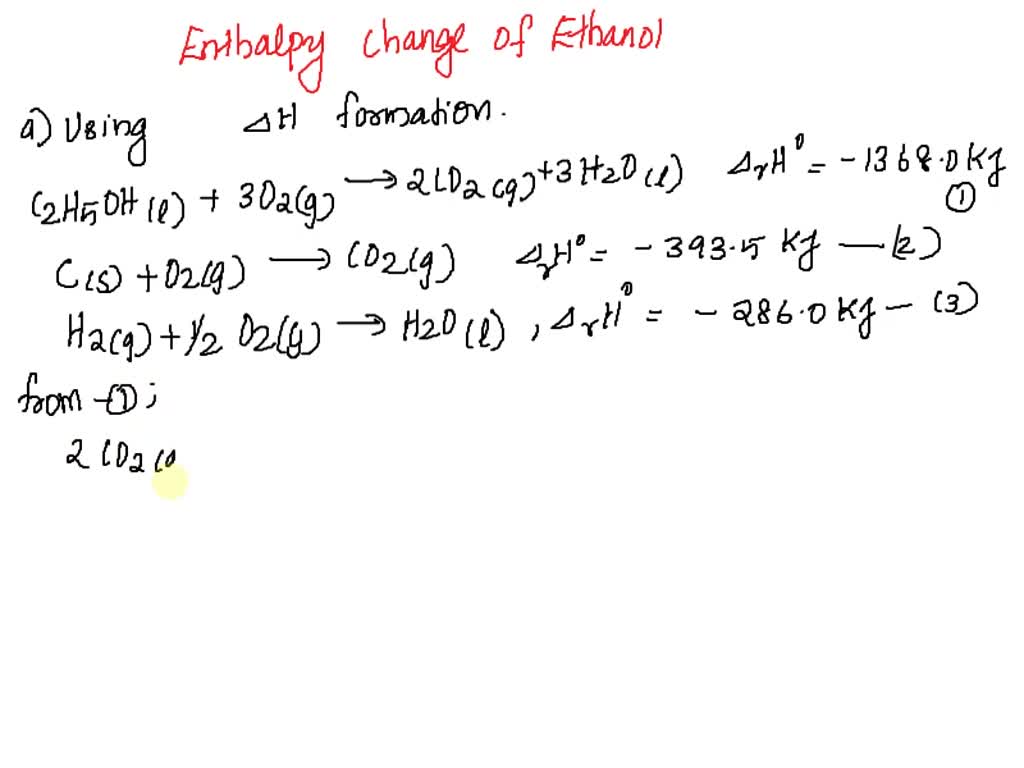 Enthalpy change of Ethanol
a) Using ΔH formation.
C2H5OH(l) + 3O2(g) → 2CO2(g) + 3H2O(l) ΔrH° = -1368.0 KJ ①
C(s) + O2(g) → CO2(g) ΔrH° = - 393.5 KJ — (2)
H2(g) + 1/2 O2(g) → H2O(l), ΔrH° = - 286.0 KJ - (3)
from -①;
2 CO2 (